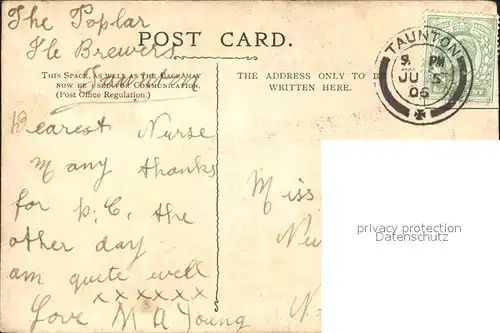 The Poplar
Ile Brewers
Taunton
POST CARD.
THIS SPACE, AS WELL AS THE BACK, MAY
NOW BE USED FOR COMMUNICATION.
(Post Office Regulation.)
THE ADDRESS ONLY TO BE
WRITTEN HERE.
TAUNTON
9 PM
JU 5
06
Dearest Nurse
Many thanks
for p.c. the
other day
am quite well
x x x x x x
Love M A Young
Miss
privacy protection
Datenschutz